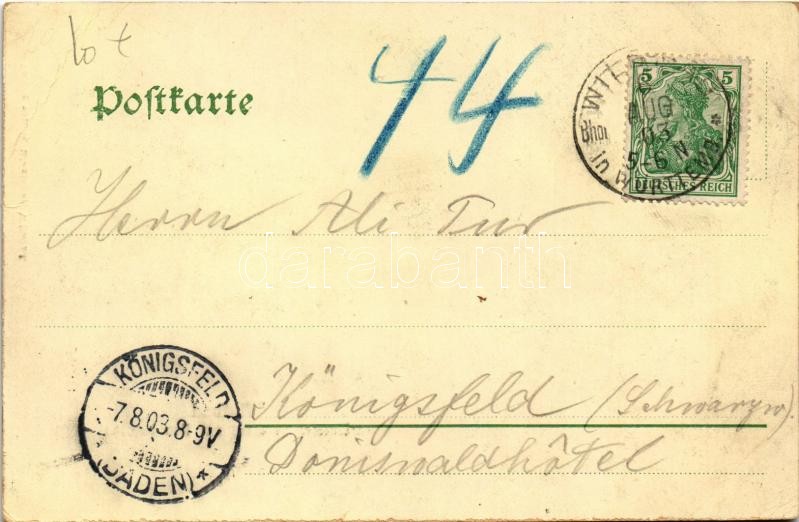 44
Postkarte
5 5
DEUTSCHES REICH
AUG
03
5-6 N
Bhof
Herrn Ali Tur
darabanth
KÖNIGSFELD
-7.8.03.8-9V
(BADEN)
Königsfeld (Schwarzw).
Doniswaldhôtel